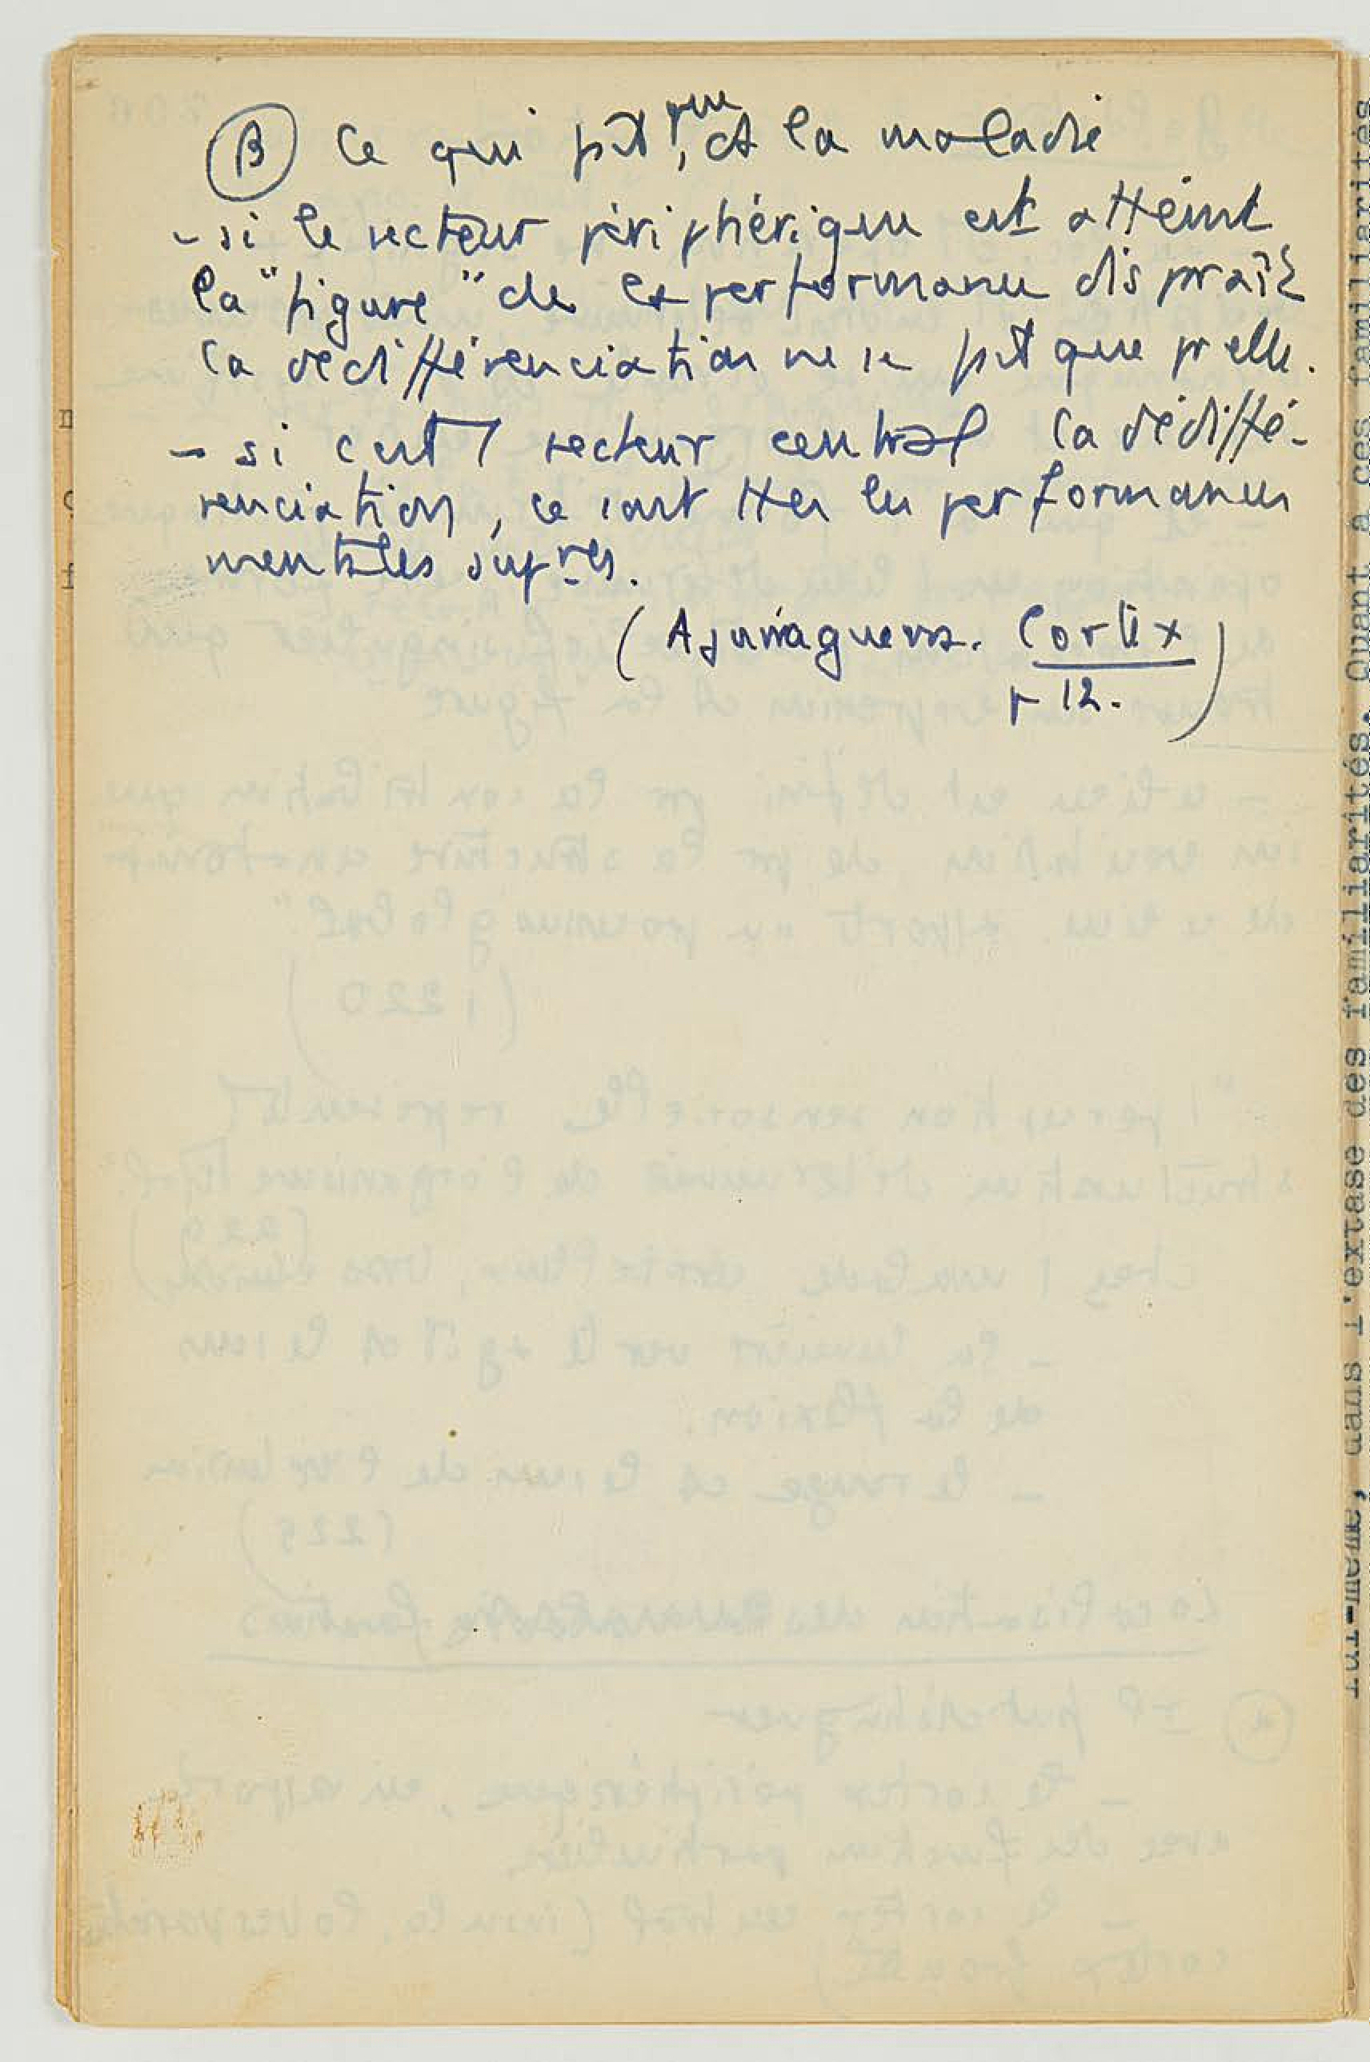 B Ce qui pit, que, ct la maladie
- si le secteur périphérique est atteint
la "figure" de la performance disparaît
la dédifférenciation ne se pit que pr elle.
- si c'est l secteur central la dédiffé-
renciation, ce sont ttes les performances
mentales supres.
(Ajuriaguerra. Cortex
p 12.)
lui-même, dans l'extase des familiarités. Quant à ces familiarités